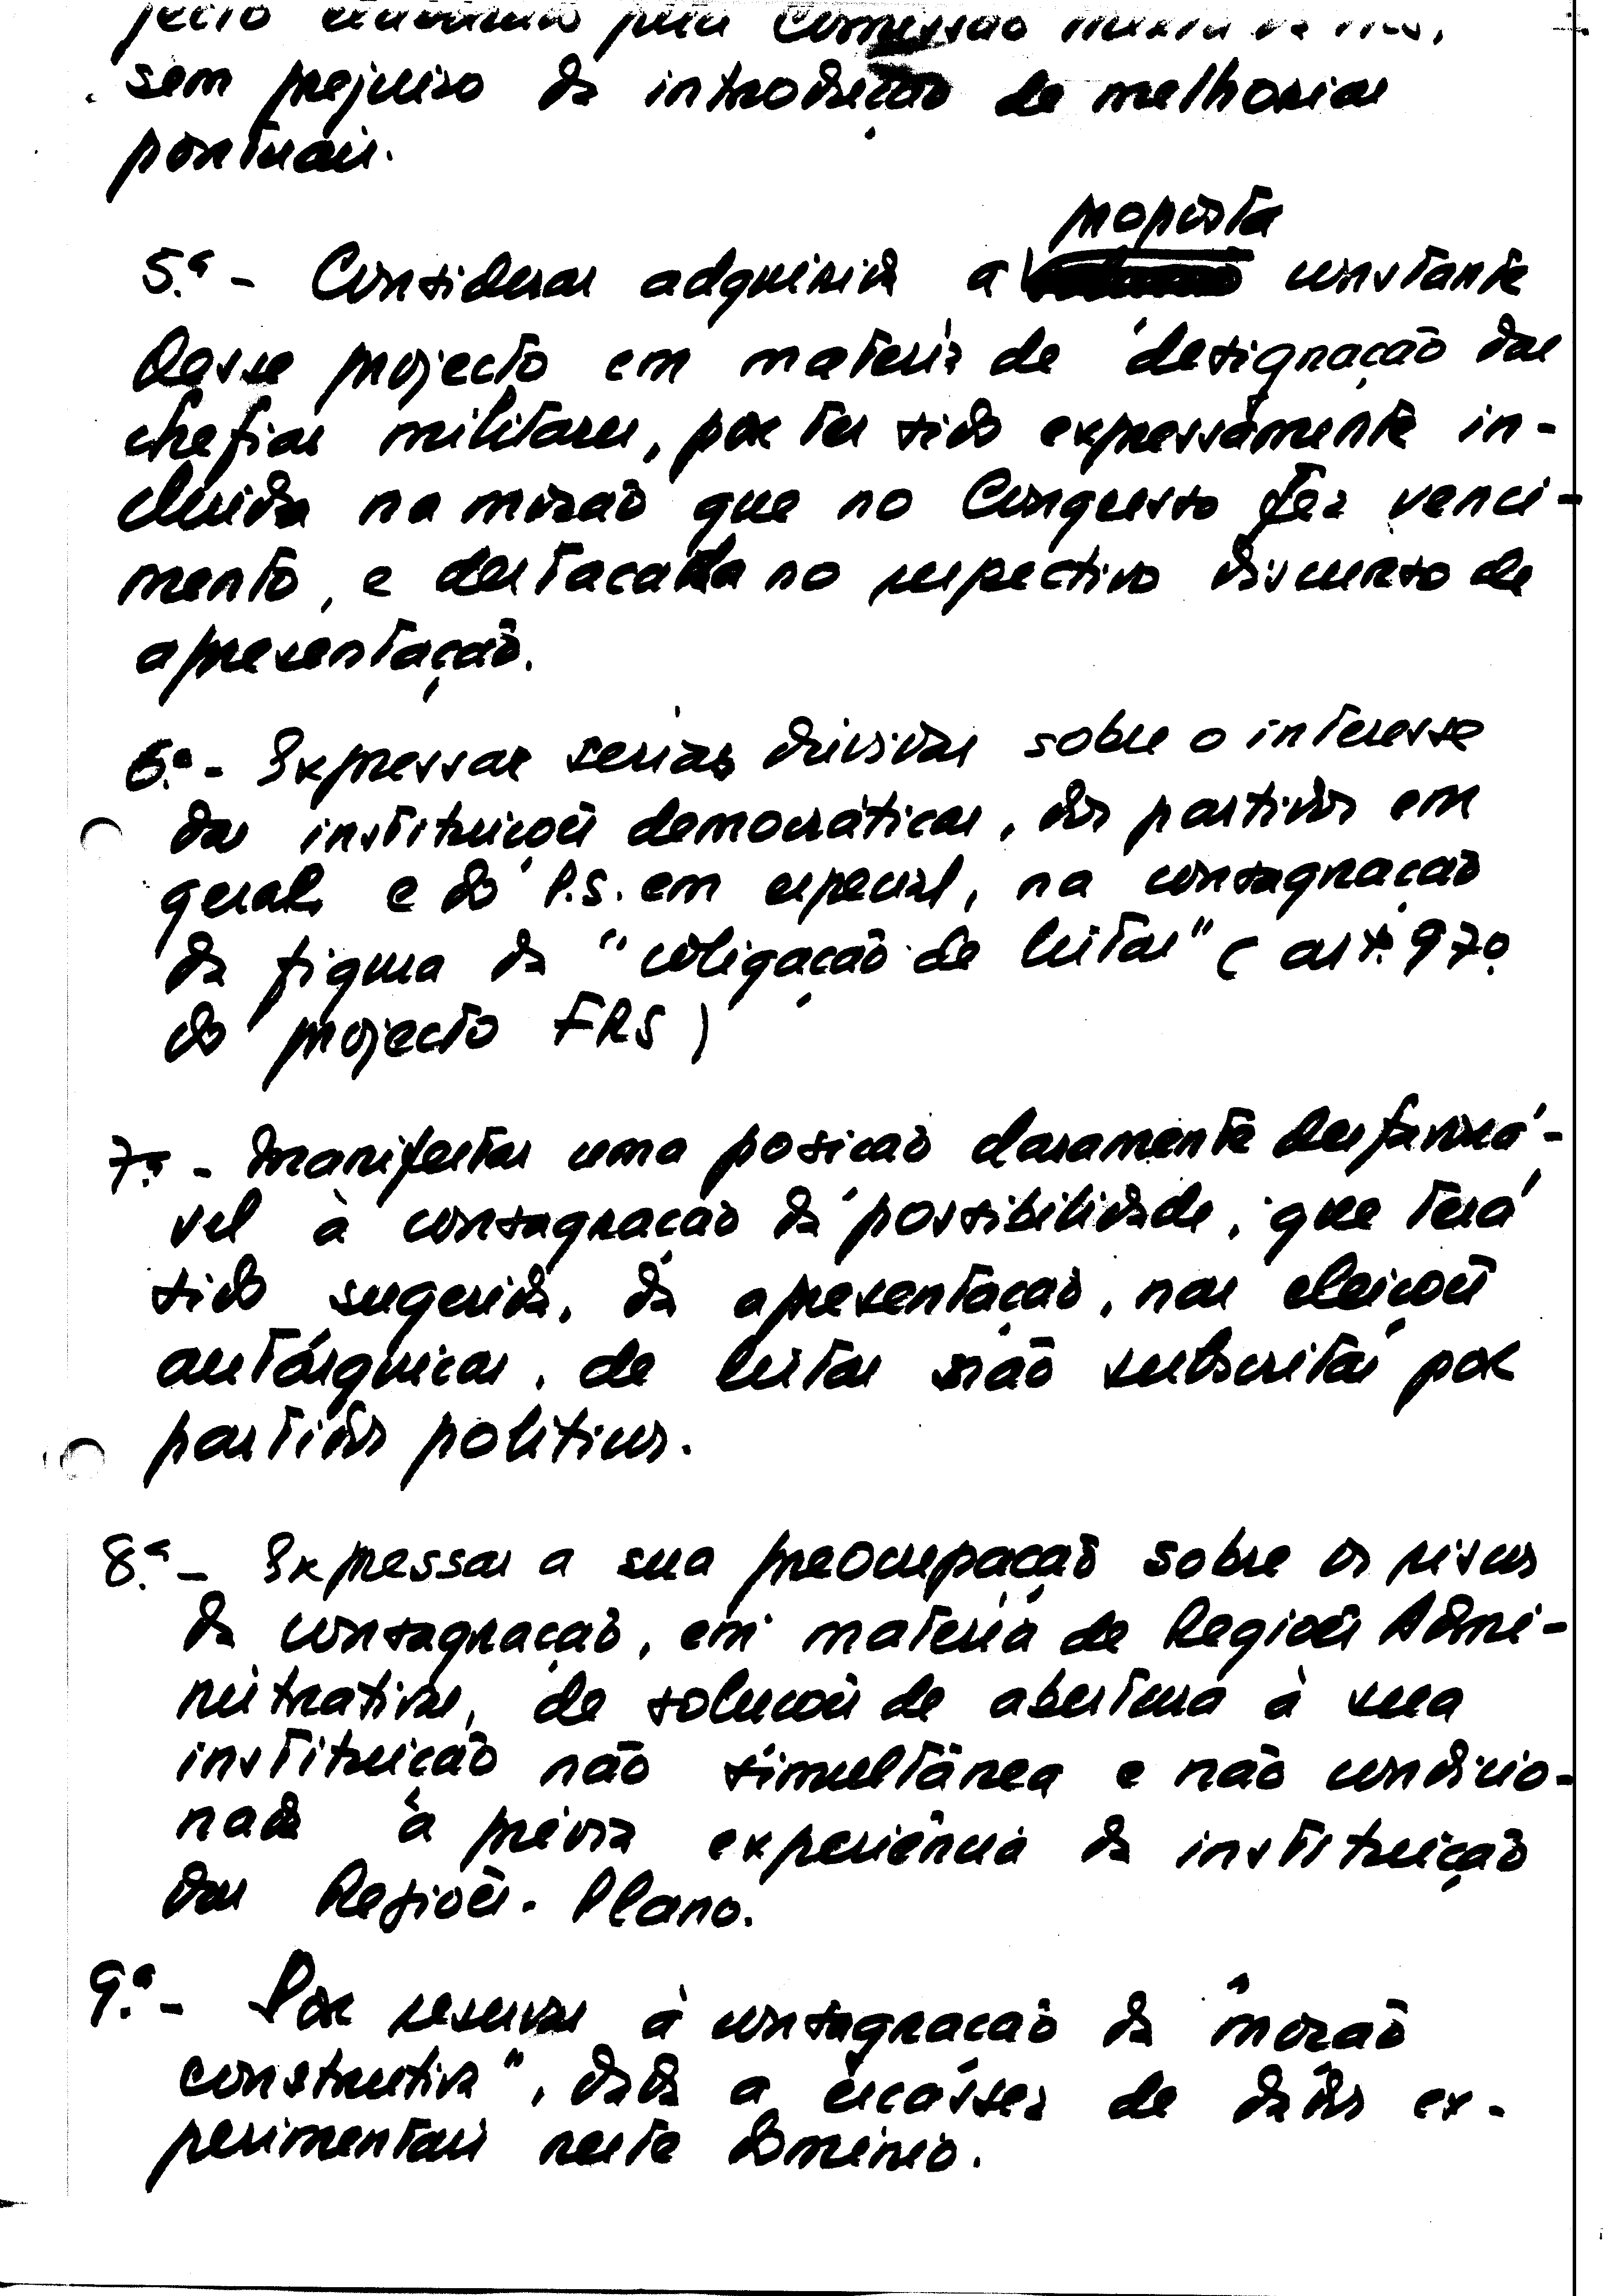 jecto elaborado pela Comissão
sem prejuizo da introdução de melhorias
pontuais.
proposta
5.ª - Considerar adquirida a constante
desse projecto em materia de designação das
chefias militares, por ter sido expressamente in-
cluida na moção que no Congresso fez venci-
mento, e destacada no respectivo discurso de
apresentação.
6.ª - Expressar serias dúvidas sobre o interesse
das instituições democráticas, dos partidos em
geral, e do P.S. em especial, na consagração
da figura da "coligação de listas" (art.º 97º
do projecto FRS)
7.ª - Manifestar uma posição claramente desfavorá-
vel à consagração da possibilidade, que terá
sido sugerida, da apresentação, nas eleições
autárquicas, de listas não subscritas por
partidos politicos.
8.ª - Expressar a sua preocupação sobre os riscos
da consagração, em materia de Regiões Admi-
nistrativas, de soluções de abertura à sua
instituição não simultânea e não condicio-
nada à prévia experiência da instituição
das Regiões-Plano.
9.ª - Pôr reservas à consagração da "moção
construtiva", dada a escássez de dados ex-
perimentais neste dominio.